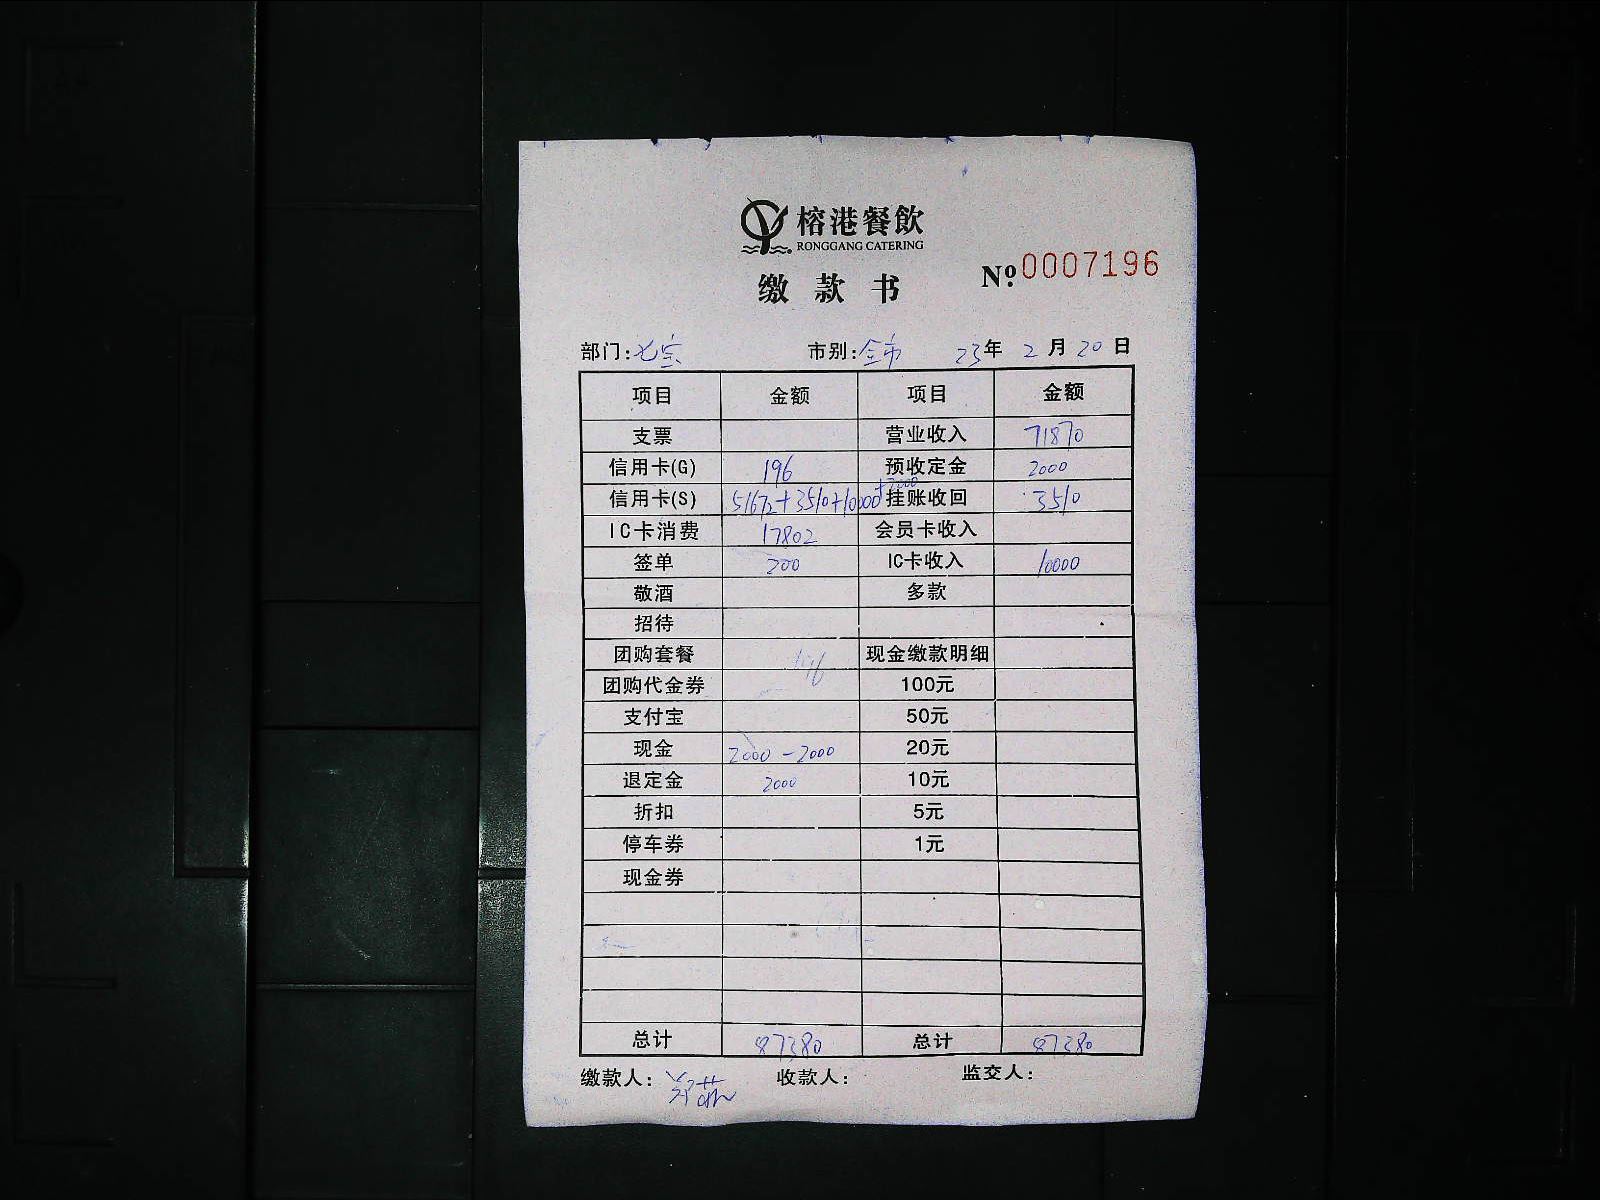 榕港餐飲
RONGGANG CATERING
缴款书 №0007196
部门:七宝 市别:全市 23年2月20日
项目 金额 项目 金额
支票 营业收入 71870
信用卡(G) 196 预收定金 2000
信用卡(S) 51672+3510+10000+2000 挂账收回 3510
IC卡消费 17802 会员卡收入
签单 200 IC卡收入 10000
敬酒 多款
招待
团购套餐 现金缴款明细
团购代金券 100元
支付宝 50元
现金 2000-2000 20元
退定金 2000 10元
折扣 5元
停车券 1元
现金券
总计 87380 总计 87380
缴款人: 收款人: 监交人: